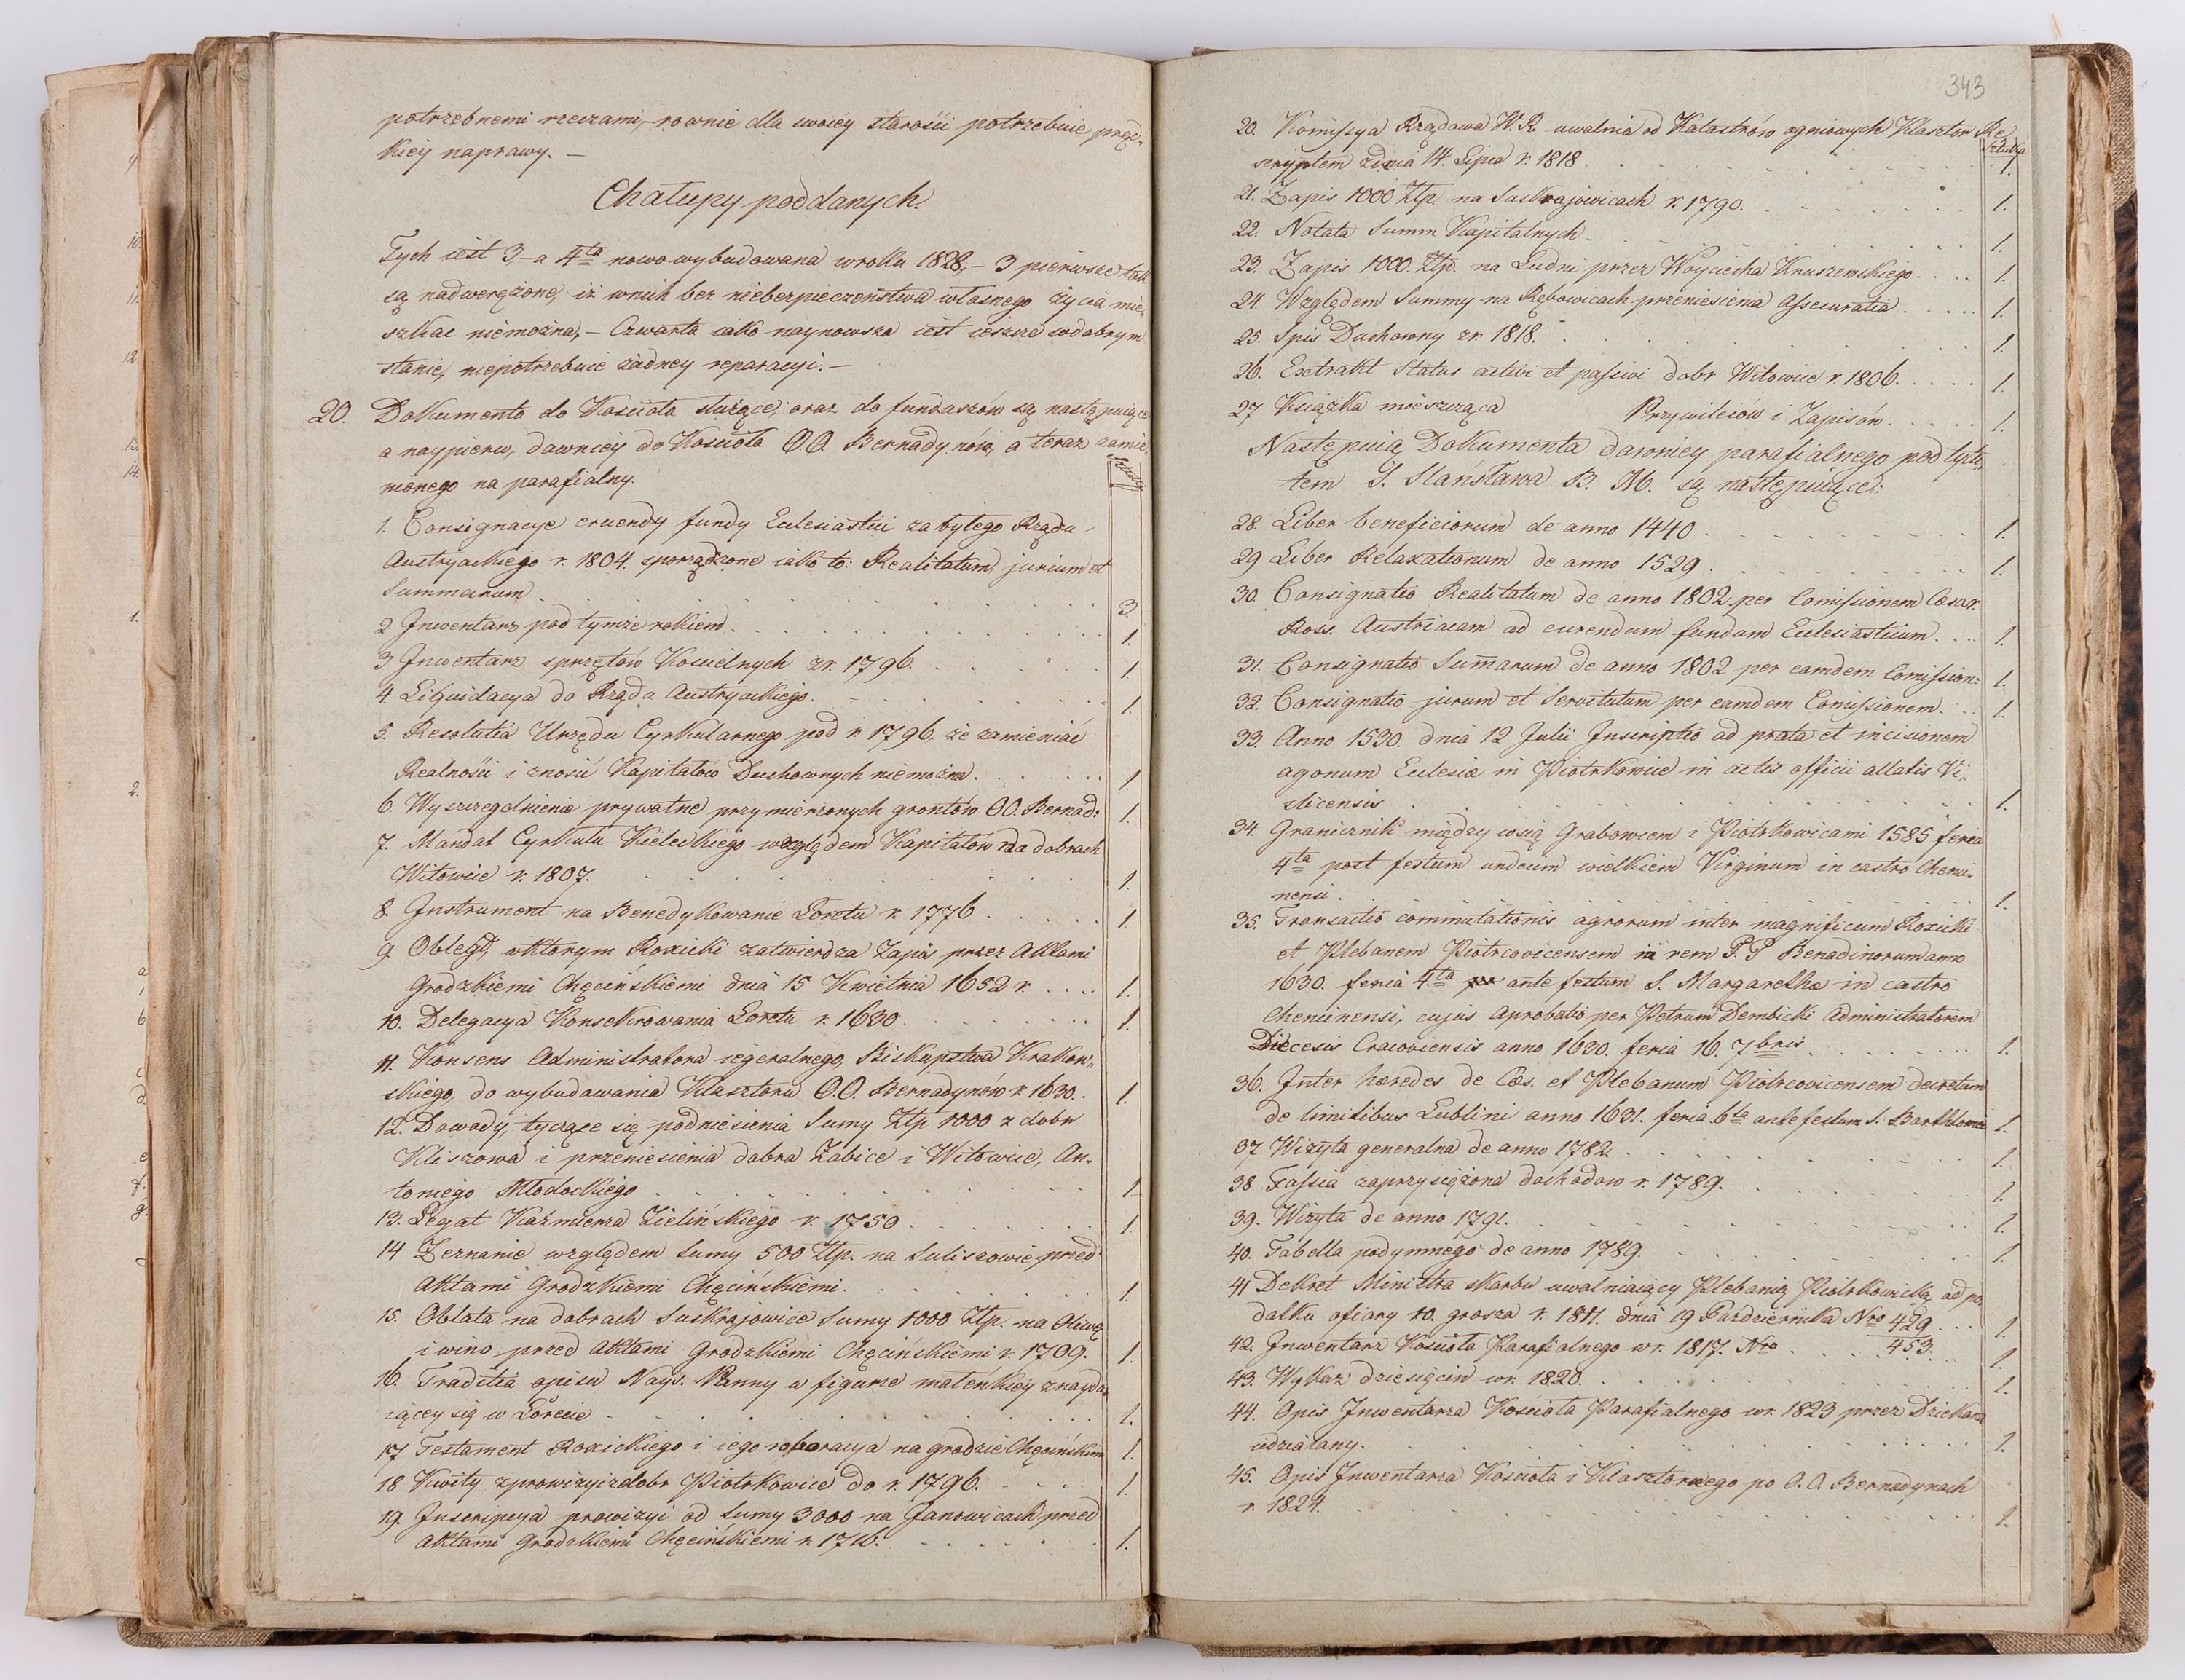 potrzebnemi rzeczami, – rownie dla swoiéy starości potrzebuie pręd-
kiéy naprawy. –
Chałupy poddanych.
Tych iest 3, – a 4ta nowo wybudowana w roku 1828, – 3 pierwsze tak
są nadwerężone, iż w nich bez niébezpieczeństwa własnego życia mie-
szkac niémożna, – Czwarta iako naynowsza iést ieszcze w dobrym
stanie, niepotrzebuie żadney reparacyi. –
20. Dokumenta do Kościoła służące, oraz do funduszów są następuiące
a naypierw, dawniéy do Kościoła O.O. Bernadynów, a teraz zamie-
nionego na parafialny.
Sztuka
1. Consignacye eruendy fundy Eclesiastici za byłego Rządu
Austryackiego r. 1804. sporządzone iako to: Realitatum jurium et
Summarum 3
2 Inwentarz pod tymże rokiem 1.
3 Inwentarz sprzętów Kościelnych zr. 1796. 1
4 Liquidacya do Rządu Austryackiego. 1.
5. Resolutia Urzędu Cyrkularnego pod r. 1796, że zamieniać
Realności i znosić Kapitałów Duchownych niemożna. 1
6 Wyszczegolnienie prywatne przymierzonych grontów OO. Bernad: 1.
7. Mandat Cyrkułu Kieleckiego względem Kapitałów na dobrach
Witowice r. 1807. 1.
8. Instrument na Benedykowanie Loretu r. 1776. 1.
9. Oblegd, w którym Roxicki zatwierdza Zapis przez Aktami
Grodzkiemi Chęcińskiemi dnia 15 Kwietnia 1652 r. 1.
10. Delegacya Konsekrowania Loretu r. 1630. 1.
11. Konsens Administratora iegeralnego, Biskupstwa Krakow-
skiego, do wybudowania Klasztoru O.O. Bernadynów r. 1630. 1.
12. Dowody, tyczące się podniesienia Sumy Ztp 1000 z dobr
Kliszowa i przeniesienia dobra Żabice i Witowice, An-
toniego Młodockiego 1.
13. Legat Kaźmierza Zielińskiego r. 1750. 1
14 Zeznanie względem Sumy 500 Ztp. na Suliszowie przed
Aktami Grodzkiemi Chęcińskiemi. 1.
15. Oblata na dobrach Suskrajowice Sumy 1000 Ztp. na Oliwę
i wino przed Aktami Grodzkiemi Chęcińskiemi r. 1709. 1.
16. Traditia opisu Nays. Panny w figurze matenkiéy znaydu-
iącey się w Lorecie 1.
17 Testament Roxickiego i iego roboracya na grodzie Chęcińskim 1.
18 Kwity z prowizyi z dobr Piotrkowice do r. 1796. 1.
19 Inscripcya prowizyi od Sumy 3000 na Janowicach przed
Aktami Grodzkiemi Chęcińskiemi r. 1716. 1.
343
20. Komissya Rządowa W.R. uwalnia od Katastrów ogniowych Klasztor Re
Sztuka
scryptem z dnia 14. Lipca r. 1818. 1.
21. Zapis 1000 Ztp. na Suskrajowicach r. 1790. 1.
22. Notata Summ Kapitalnych. 1.
23. Zapis 1000. Ztp. na Ludni przez Woyciecha Kruszewskiego. 1.
24. Względem Summy na Rębowicach przeniesienia Assecuratia 1.
25. Spis Duchowny zr. 1818. 1.
26. Extrakt Status activi et passivi dobr Witowice r. 1806. 1.
27 Książka miészcząca Przywileiów i Zapisów. 1.
Następuią Dokumenta dawniey parafialnego pod tytu-
łem S. Stanisława B. M. są następuiące:
28. Liber beneficiorum de anno 1440 1.
29 Liber Relaxationum de anno 1529. 1.
30. Consignatio Realitatum de anno 1802. per Comissionem Cæsar.
Ross. Austriacam ad eurendum fundum Eclesiasticum. 1.
31. Consignatio Sum̄arum de anno 1802 per eamdem Comission: 1.
32. Consignatio jurum et Servitutum per eamdem Comissionem. 1.
33. Anno 1530. dnia 12 Julii Inscriptio ad prata et incisionem
agonum Eclesiæ in Piotrkowice in actis officii allatis Vi-
slicensis 1.
34. Granicznik między wsią Grabowcem i Piotrkowicami 1585 feria
4ta post festum undecim wielkiem Virginum in castro Chenci-
nensi. 1.
35. Transactio commutationis agrorum inter magnificum Roxicki
et Plebanem Piotrcovicensem in rem P. P Benadinorum anno
1630. feria 4.ta ante festum S. Margarethæ in castro
Chencinensi, cujus Aprobatio per Petrum Dembicki Administratorem
Diecesis Cracoviensis anno 1630. feria 16. 7bris 1.
36. Inter hæredes de Cæs. et Plebanum Piotrcovicensem decretum
de limitibus Lublini anno 1631. feria 6ta ante festum S. Barthlomæi 1.
37 Wizyta generalna de anno 1782. 1.
38 Fassia zaprzysiężona dochodow r. 1789. 1.
39. Wizyta de anno 1791. 1.
40. Tabella podymnego de anno 1789. 1.
41 Dekret Ministra skarbu uwalniaiący Plebanią Piotrkowicką od po-
datku ofiary 10. grosza r. 1811. dnia 19 Października Nro 429 1.
42. Inwentarz Kościoła Parafialnego w r. 1817. Nro 453. 1.
43. Wykaz dziesięcin w r. 1820. 1.
44. Opis Inwentarza Kościoła Parafialnego w r. 1823 przez Dziekana
udziałany. 1.
45. Opis Inwentarza Kościoła i Klasztornego po O.O. Bernadynach
r. 1824. 1.